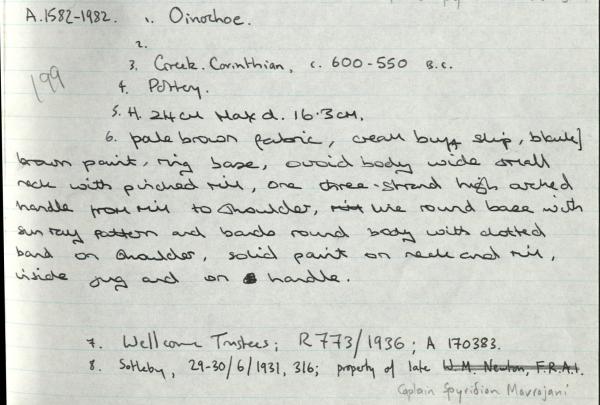 A.1582-1982. 1. Oinochoe.
2.
199
3. Greek. Corinthian, c. 600-550 B.C.
4. Pottery.
5. H. 24cm Max d. 16.3cm.
6. pale brown fabric, cream buff slip, black/
brown paint, ring base, ovoid body wide small
neck with pinched rim, one three-strand high arched
handle from rim to shoulder, line round base with
sun ray pattern and bands round body with dotted
band on shoulder, solid paint on neck and rim,
inside jug and on handle.
7. Wellcome Trustees; R773/1936; A 170383.
8. Sotheby, 29-30/6/1931, 316; property of late W.M. Newton, F.R.A.I.
Captain Spyridion Mavrojani